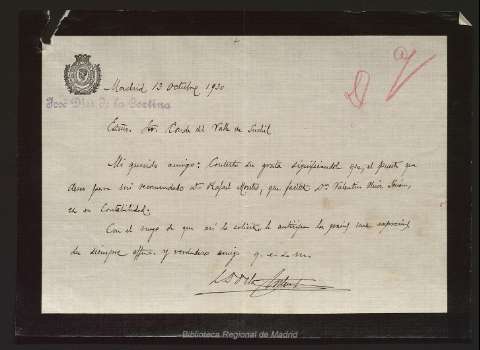 Madrid 13 Octubre 1930
José Díaz de la Cortina
Excmo. Sor. Conde del Valle de Suchil
Mi querido amigo: Contesto su grata significándole que, el puesto que
desea para su recomendado Dn Rafael, que Dn Valentin
es en Contabilidad.
Con el ruego de que así lo solicite, le anticipa las gracias
de siempre affmo. y verdadero amigo q. e. s. m.
Biblioteca Regional de Madrid